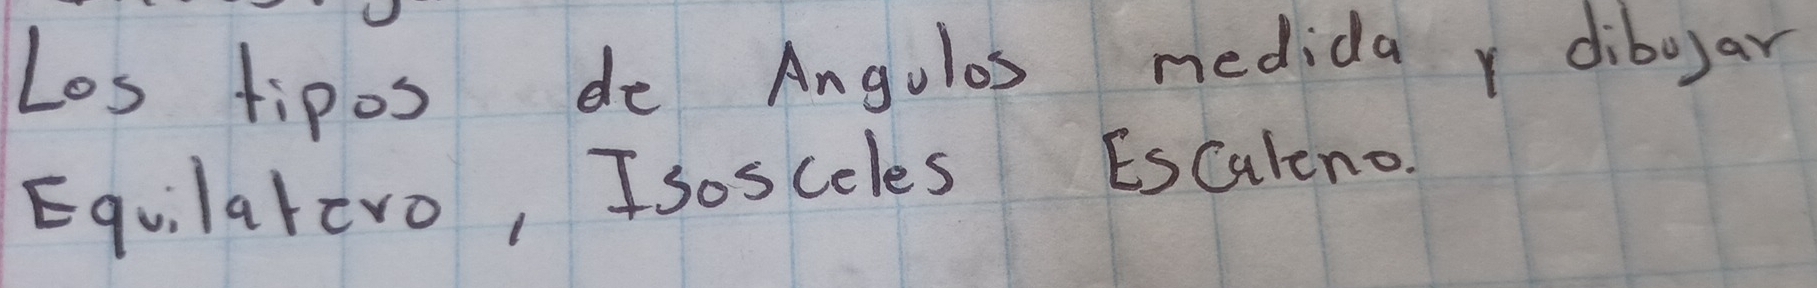 Los tipos de Angulos medida y dibujar
Equilatero, Isosceles Escaleno.